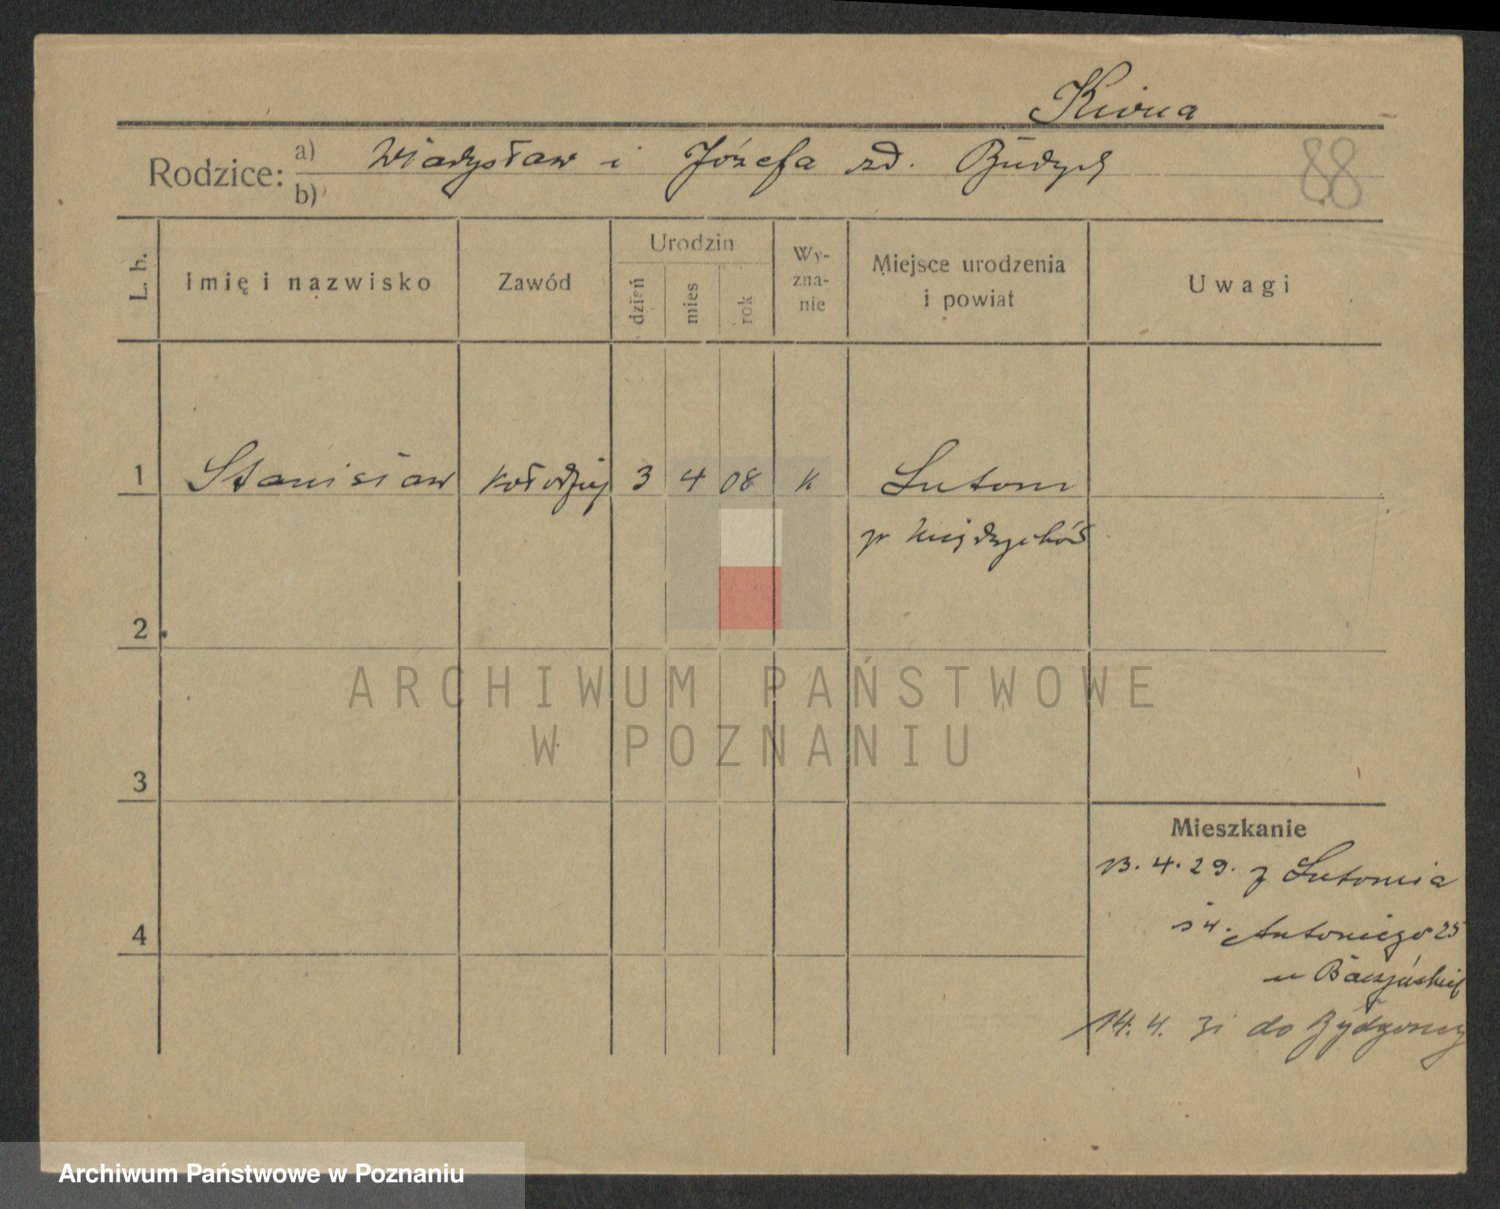 Kiona
Rodzice: a) Władysław i Józefa zd. Budych 88
b)
L. b. Imię i nazwisko Zawód Urodzin dzień mies rok Wy-zna-nie Miejsce urodzenia i powiat Uwagi
1 Stanisław kołodziej 3 4 08 k Lutom
p Międzychód
2
ARCHIWUM PAŃSTWOWE
W POZNANIU
3
Mieszkanie
13. 4. 29. z Lutomia
4 św. Antoniego 25
u Baczyńskiej
14. 4. 31 do Bydgoszczy
Archiwum Państwowe w Poznaniu